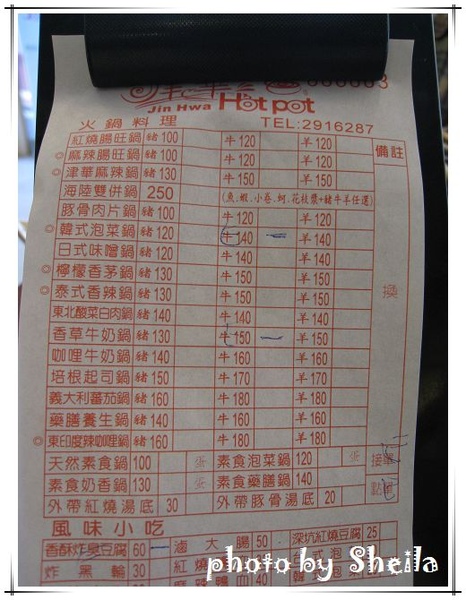 Jin Hwa Hot pot
火鍋料理 TEL:2916287
紅燒腸旺鍋 豬100 牛120 羊120 備註
◎麻辣腸旺鍋 豬100 牛120 羊120
◎津華麻辣鍋 豬130 牛150 羊150
海陸雙併鍋 250 (魚.蝦.小卷.蚵.花枝漿+豬牛羊任選)
豚骨肉片鍋 豬100 牛120 羊120
◎韓式泡菜鍋 豬120 牛140 一 羊140
日式味噌鍋 豬120 牛140 羊140
◎檸檬香茅鍋 豬130 牛150 羊150
◎泰式香辣鍋 豬130 牛150 羊150 換
東北酸菜白肉鍋 豬140 牛140 羊140
香草牛奶鍋 豬130 牛150 一 羊150
咖哩牛奶鍋 豬140 牛160 羊160
培根起司鍋 豬150 牛170 羊170
義大利蕃茄鍋 豬160 牛180 羊180
藥膳養生鍋 豬140 牛160 羊160
◎東印度辣咖哩鍋 豬160 牛180 羊180
天然素食鍋 100 蛋 素食泡菜鍋 120 蛋
素食奶香鍋 130 蛋 素食藥膳鍋 140
外帶紅燒湯底 30 外帶豚骨湯底 20
風味小吃
香酥炸臭豆腐 60 一 滷大腸 50 深坑紅燒豆腐 25
炸黑輪 30
photo by Sheila